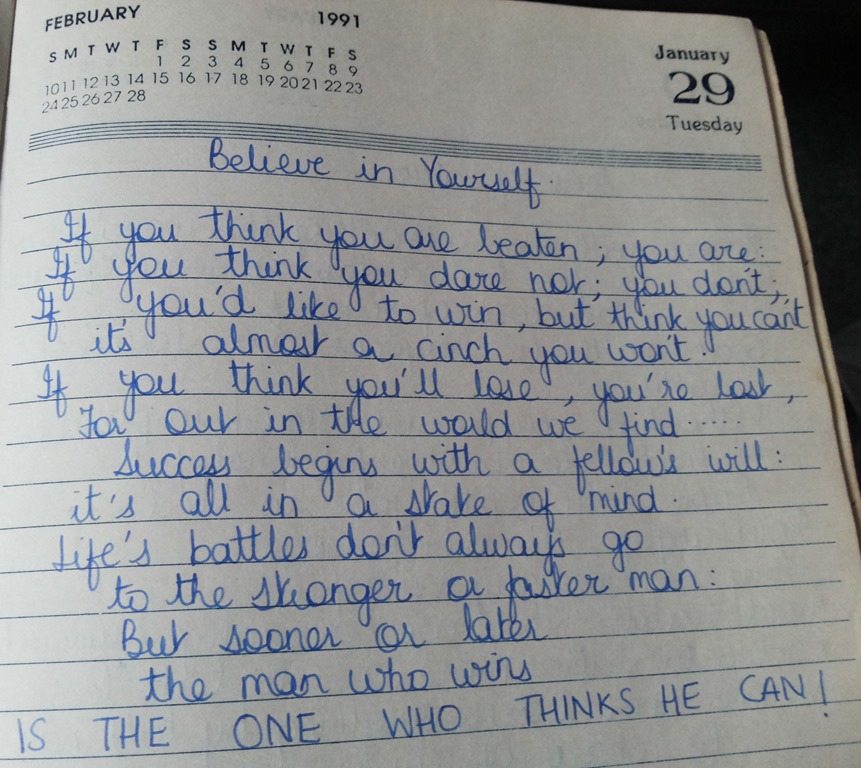 FEBRUARY 1991
S M T W T F S S M T W T F S
1 2 3 4 5 6 7 8 9
10 11 12 13 14 15 16 17 18 19 20 21 22 23
24 25 26 27 28
January
29
Tuesday
Believe in Yourself.
If you think you are beaten, you are:
If you think you dare not; you don't;
If you'd like to win, but think you can't
it's almost a cinch you won't.
If you think you'll lose, you're lost,
For out in the world we find.....
Success begins with a fellow's will:
it's all in a state of mind.
Life's battles don't always go
to the stronger or faster man:
But sooner or later
the man who wins
IS THE ONE WHO THINKS HE CAN!